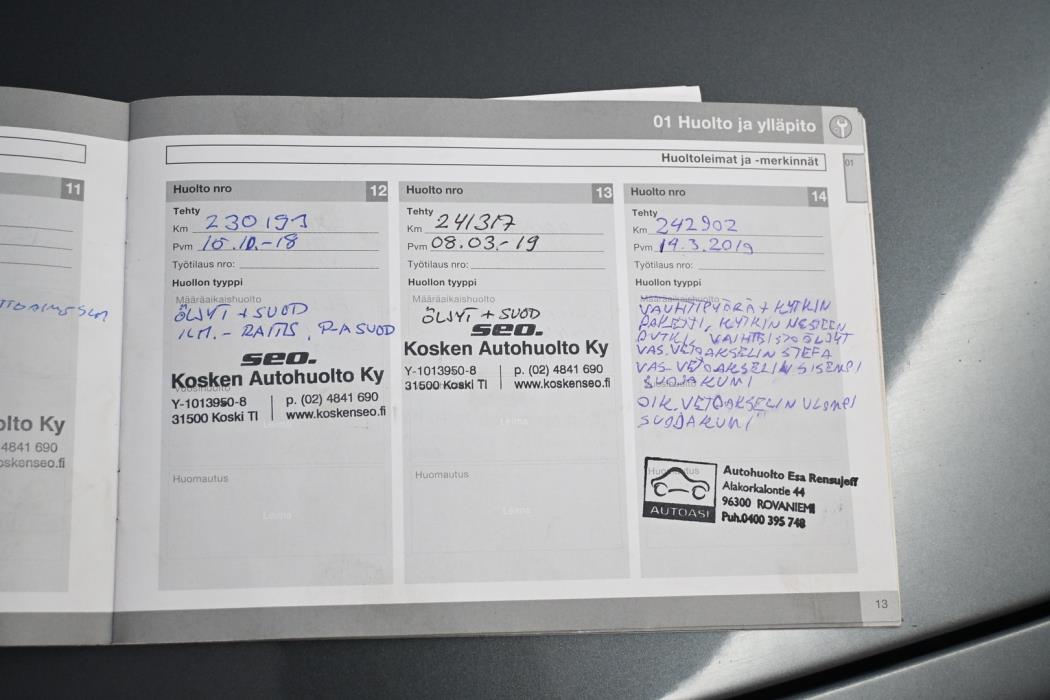 01 Huolto ja ylläpito
Huoltoleimat ja -merkinnät
01
11
olto Ky
4841 690
oskenseo.fi
Huolto nro 12
Tehty
Km 230191
Pvm 15.10.-18
Työtilaus nro:
Huollon tyyppi
Määräaikaishuolto
ÖLJYT + SUOD
ILM. - RAITIS. P-A SUOD
seo.
Kosken Autohuolto Ky
Y-1013950-8 p. (02) 4841 690
31500 Koski Tl www.koskenseo.fi
Leima
Huomautus
Leima
Huolto nro 13
Tehty
Km 241317
Pvm 08.03.-19
Työtilaus nro:
Huollon tyyppi
Määräaikaishuolto
ÖLJYT + SUOD
seo.
Kosken Autohuolto Ky
Y-1013950-8 p. (02) 4841 690
31500 Koski Tl www.koskenseo.fi
Leima
Huomautus
Leima
Huolto nro 14
Tehty
Km 242902
Pvm 14.3.2019
Työtilaus nro:
Huollon tyyppi
Määräaikaishuolto
VAUHTIPYÖRÄ + KYTKIN
PAKETTI, KYTKIN NESTEEN
VAIHTEISTOÖLJYT
VAS.VETOAKSELIN STEFA
VAS-VETOAKSELIN SISEMPI
SUOJAKUMI
OIK.VETOAKSELIN ULOMPI
SUOJAKUMI
Huomautus
AUTOASI
Autohuolto Esa Rensujeff
Alakorkalontie 44
96300 ROVANIEMI
Puh.0400 395 748
13